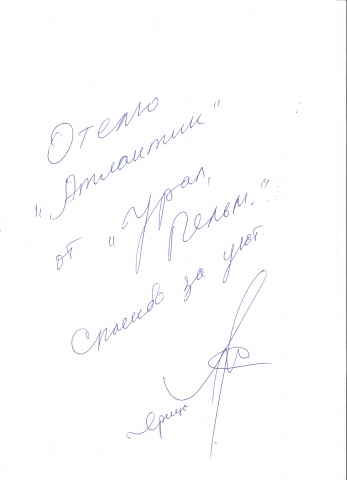 Отелю
"Атлантик"
от "Урал,
Пельм.":
Спасибо за уют.